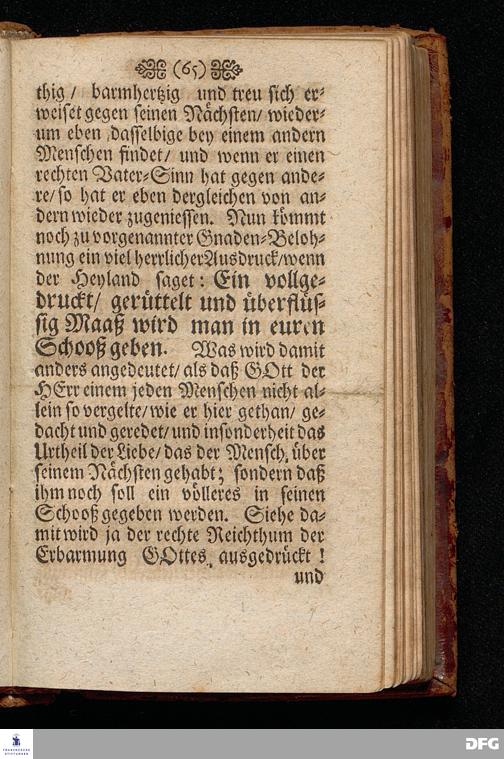 (65)
thig / barmhertzig und treu sich er-
weiset gegen seinen Nächsten / wieder-
um eben dasselbige bey einem andern
Menschen findet / und wenn er einen
rechten Vater-Sinn hat gegen ande-
re / so hat er eben dergleichen von an-
dern wieder zugeniessen. Nun kömmt
noch zu vorgenannter Gnaden-Beloh-
nung ein viel herrlicher Ausdruck / wenn
der Heyland saget: Ein vollge-
druckt / gerüttelt und überflüs-
sig Maaß wird man in euren
Schooß geben. Was wird damit
anders angedeutet / als daß GOtt der
HErr einem jeden Menschen nicht al-
lein so vergelte / wie er hier gethan / ge-
dacht und geredet / und insonderheit das
Urtheil der Liebe / das der Mensch über
seinem Nächsten gehabt; sondern daß
ihm noch soll ein völleres in seinen
Schooß gegeben werden. Siehe da-
mit wird ja der rechte Reichthum der
Erbarmung GOttes ausgedrückt!
und
FRANCKESCHE
STIFTUNGEN
DFG